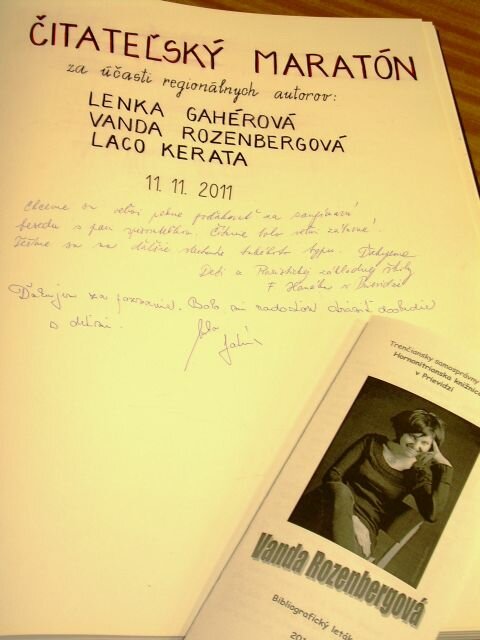 ČITATEĽSKÝ MARATÓN
za účasti regionálnych autorov:
LENKA GAHÉROVÁ
VANDA ROZENBERGOVÁ
LACO KERATA
11. 11. 2011
Chceme sa veľmi pekne poďakovať za zaujímavú
besedu s pani spisovateľkou. Čítanie bolo veľmi zaujímavé.
Tešíme sa na ďalšie stretnutie takéhoto typu. Ďakujeme
Deti z Piaristickej základnej školy
F. Hanáka v Prievidzi
Ďakujem za pozvanie. Bolo mi radosťou stráviť dopoludnie
s deťmi.
Trenčiansky samosprávny
Hornonitrianska knižnica
v Prievidzi
Vanda Rozenbergová
Bibliografický leták